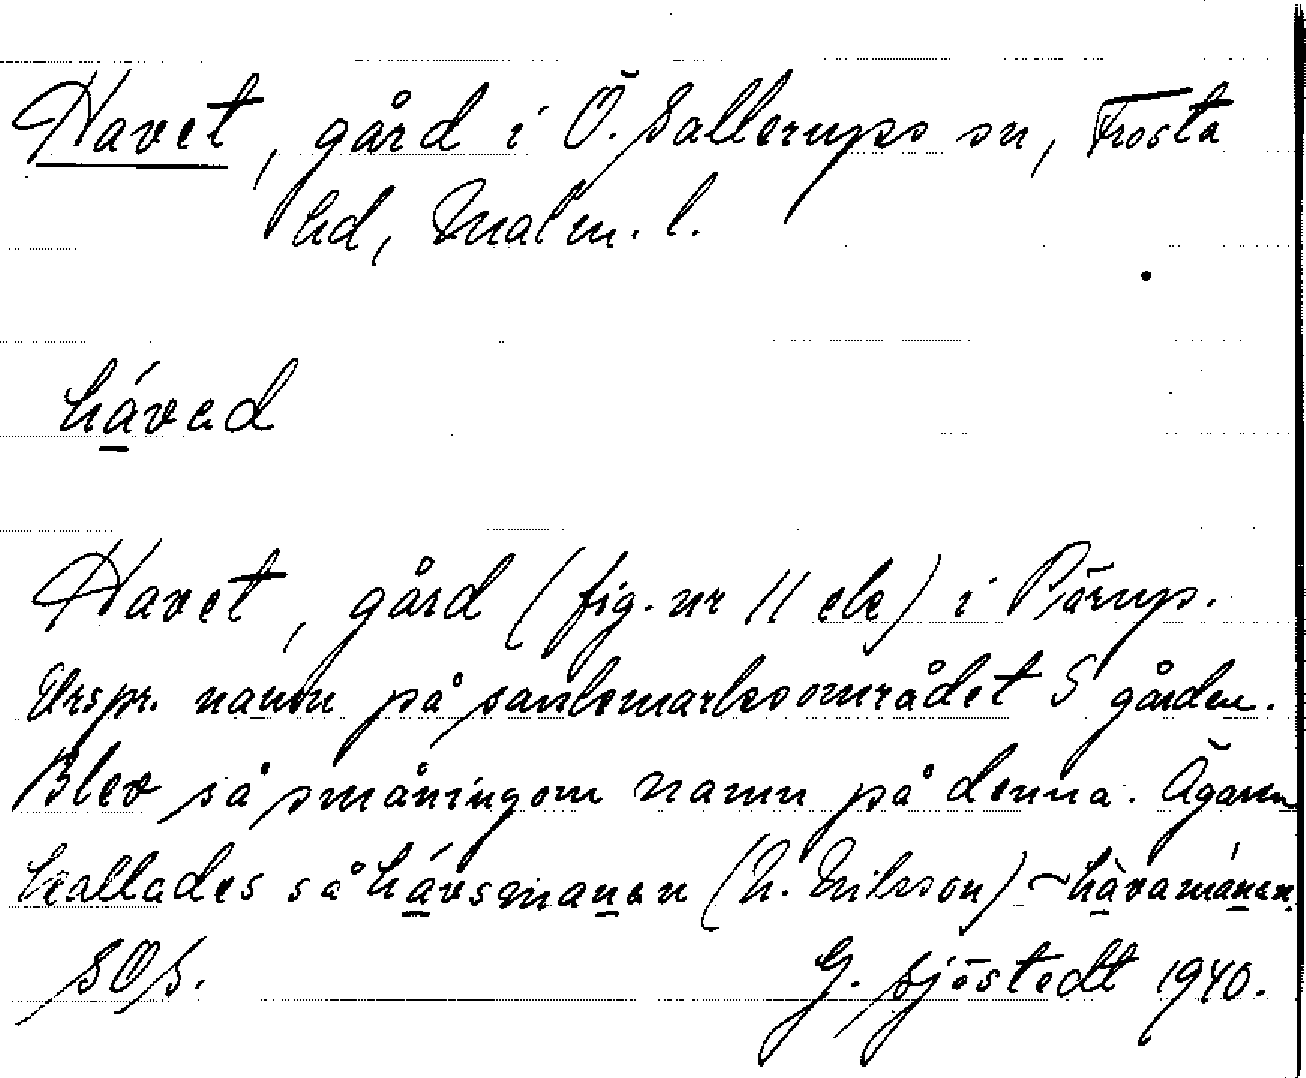 Havet, gård i Ö. Sallerups sn, Frosta
hd, Malm. l.
há̱vəd
Havet, gård (fig. nr 11 ckc) i Pärup.
Urspr. namn på sankmarksområdet S gården.
Blev så småningom namn på denna. Ägaren
kallades så há̱vsmaṉən (N. Nilsson) ~ hà̱vamáṉən.
SOS. G. Sjöstedt 1940.